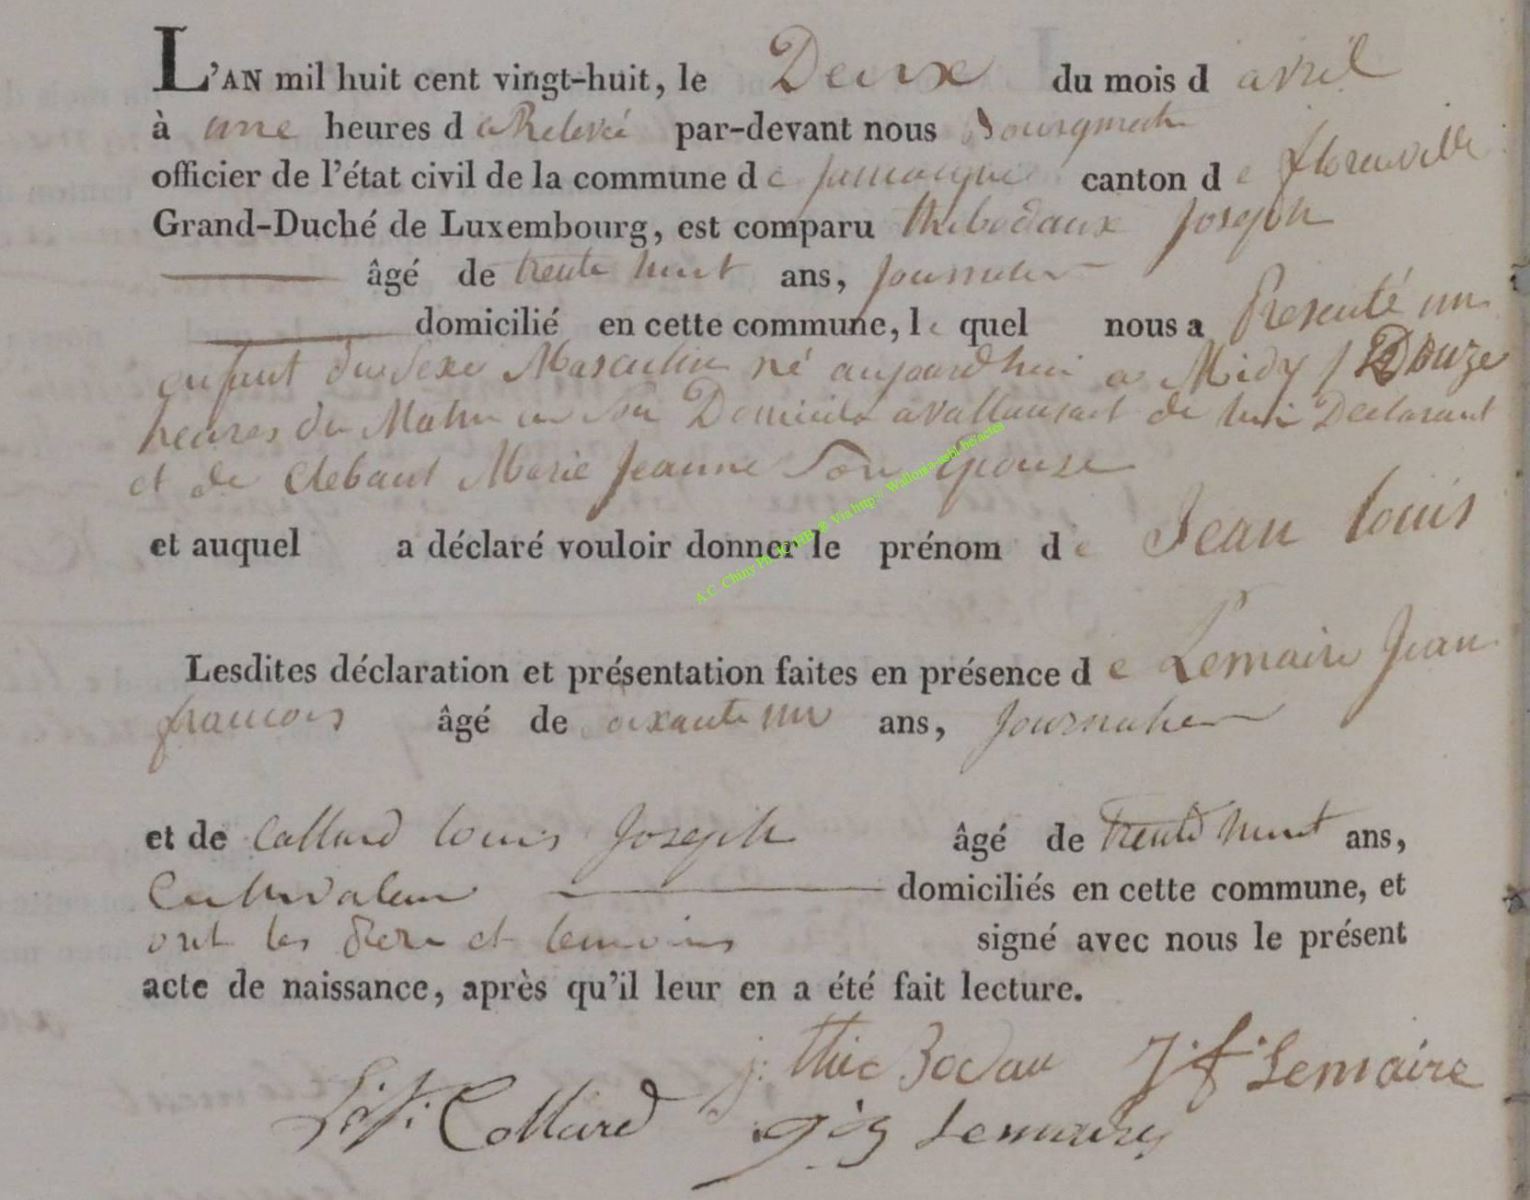 L'AN mil huit cent vingt-huit, le Deux du mois d avril
à une heures d e Relevée par-devant nous Bourgmestre
officier de l'état civil de la commune d e Jamoigne canton d e florenville
Grand-Duché de Luxembourg, est comparu thibodaux Joseph
âgé de trente huit ans, Journalier
domicilié en cette commune, l e quel nous a Presenté un
enfant du Sexe Masculin né aujourd'hui a Midy / Douze
heures du Matin en Son Domicile a vallansart de lui Declarant
et de Clebant Marie Jeanne Son epouse
et auquel a déclaré vouloir donner le prénom d e Jean Louis
A.C. Chiny Via http:// Wallonia-asbl.be/actes
Lesdites déclaration et présentation faites en présence d e Lemaire Jean
françois âgé de soixante un ans, Journalier
et de Collard Louis Joseph âgé de trente huit ans,
Cultivateur domiciliés en cette commune, et
ont les Pere et temoins signé avec nous le présent
acte de naissance, après qu'il leur en a été fait lecture.
j: thie Bodau J: f: Lemaire
L: J: Collard Lemaire